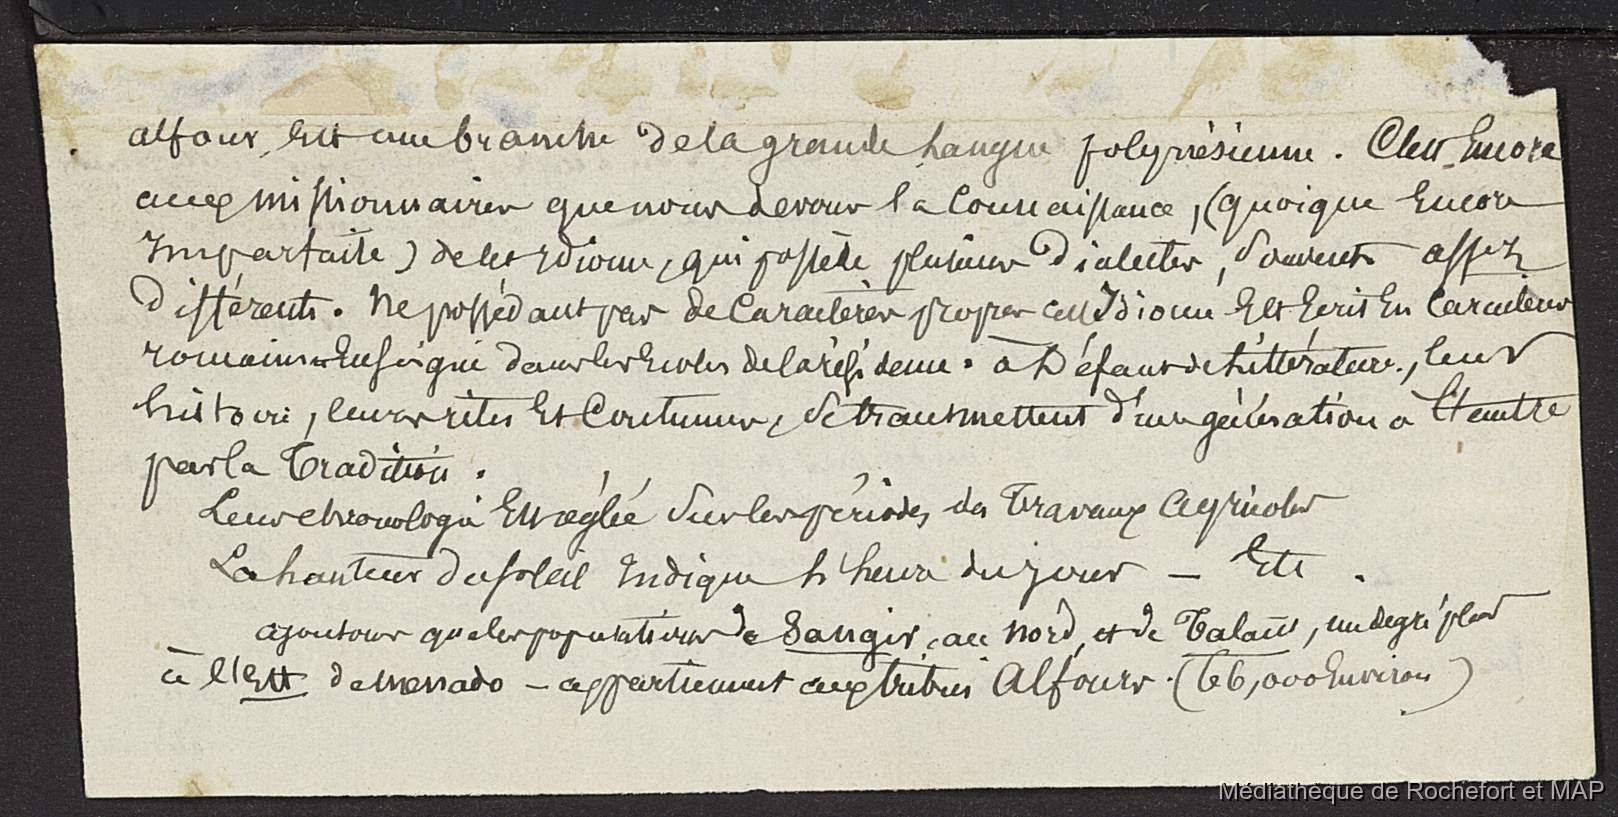 alfour, Est une branche de la grande Langue polynésienne. C'est Encore
aux missionnaires que nous devons la Connaissance, (quoique Encore
Imparfaite) de cet Idiome, qui possède plusieurs Dialectes, Souvent assez
Différents. Ne possédant pas de Caractères propres cet Idiome Est Ecrit En Caractères
romains & Enseigné dans les Ecoles de la résidence. à Défaut de Littérature, leur
histoire, leurs rites Et Coutumes, se transmettent d'une génération à l'autre
par la Tradition.
Leur chronologie Est réglée Sur les périodes des Travaux Agricoles
La hauteur du soleil Indique l'heure du jour — Etc.
ajoutons que les populations de Sangir, au Nord, et de Talaut, un degré plus
à l'Est de Menado — appartiennent aux tribus Alfours. (66,000 Environ)
Médiathèque de Rochefort et MAP